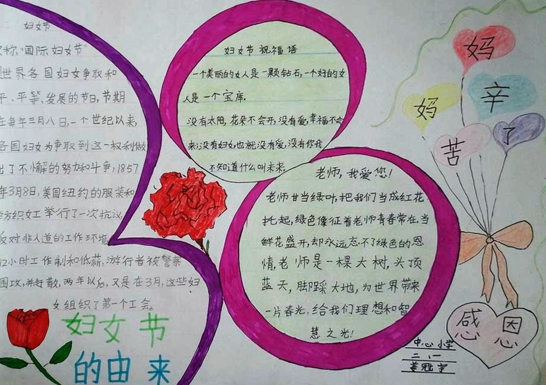 妇女节
称“国际妇女节”
世界各国妇女争取和
平、平等、发展的节日,节期
在每年三月八日,一个世纪以来,
各国妇女为争取到这一权利做
出了不懈的努力和斗争;1857
年3月8日,美国纽约的服装和
纺织女工举行了一次抗议,
反对非人道的工作环境
12小时工作制和低薪,游行者被警察
围攻,并赶散,两年以后,又是在3月,这些妇
女组织了第一个工会。
妇女节
的由来
妇女节 祝福语
一个美丽的女人是一颗钻石,一个好的女
人是一个宝库。
没有太阳,花朵不会开,没有爱,幸福不会
来;没有妇女也就没有爱,没有你我
不知道什么叫未来。
老师,我爱您!
老师甘当绿叶,把我们当成红花
托起,绿色像征着老师青春常在,当
鲜花盛开,却永远忘不了绿色的恩
情,老师是一棵大树,头顶
蓝天,脚踩大地,为世界带来
一片春光,给我们理想和智
慧之光!
妈
妈
辛
苦
了
感恩
中心小学
二、一